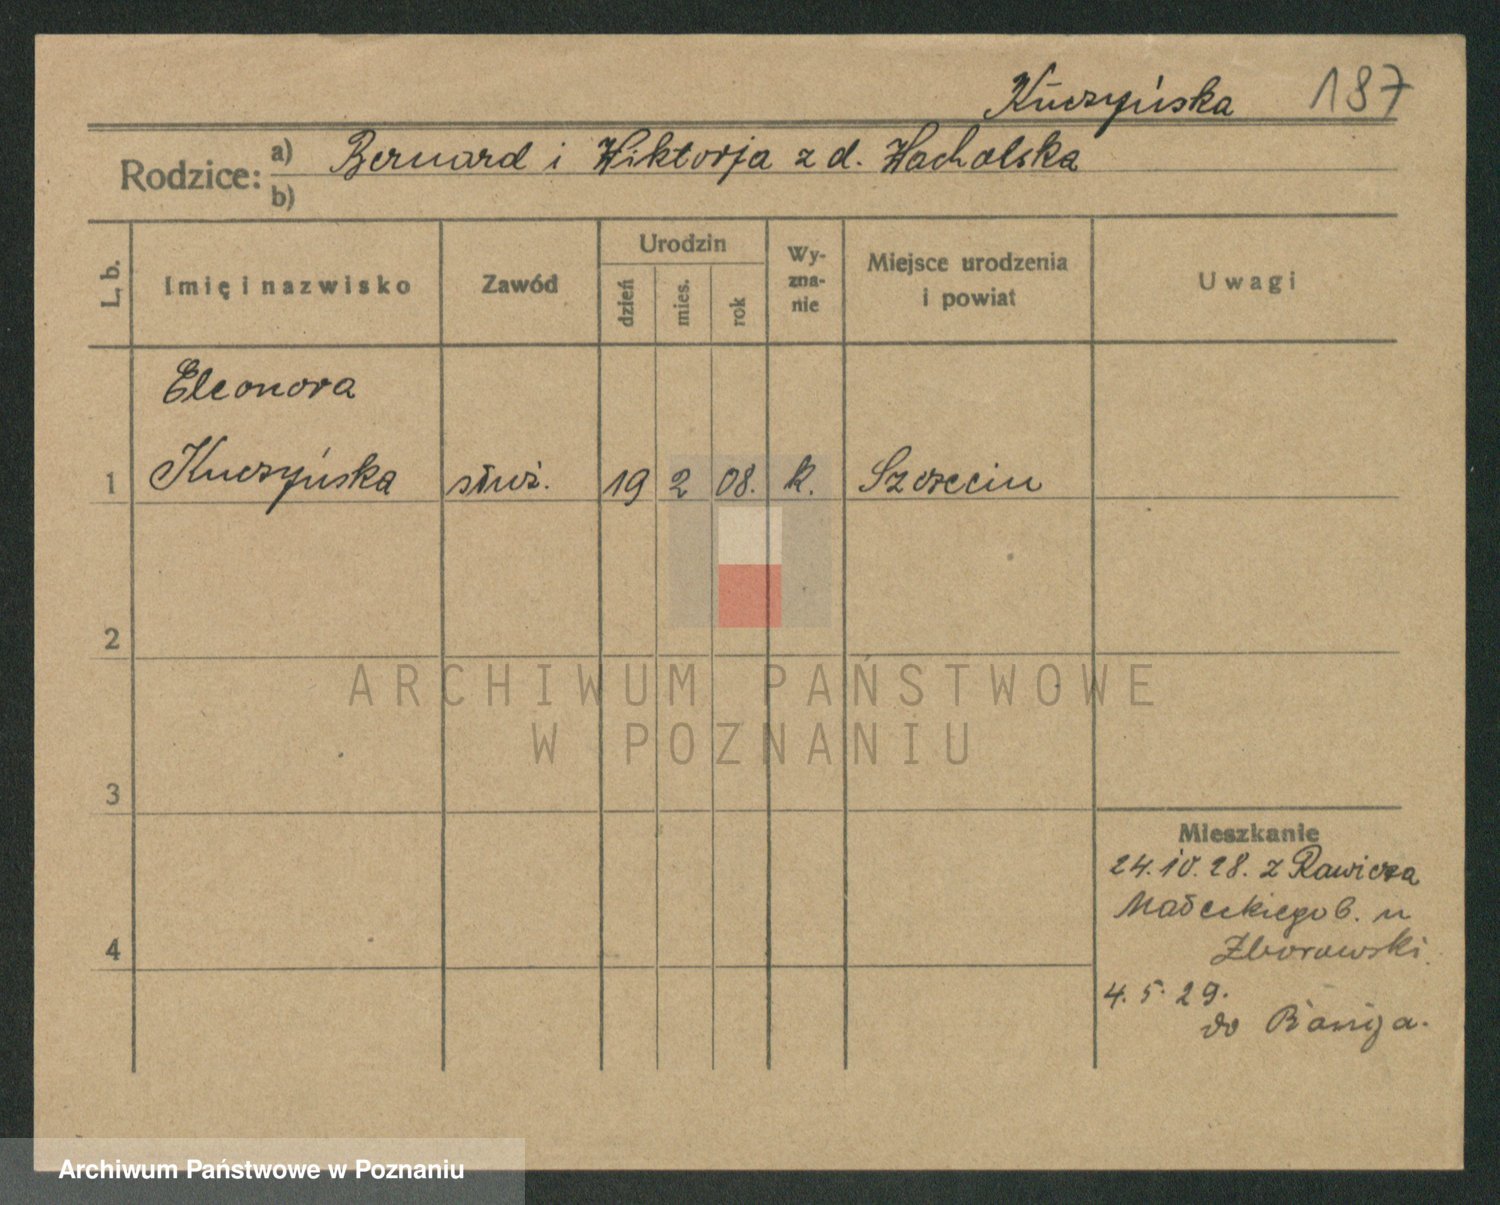 Kuczyńska 187
Rodzice: a) Bernard i Wiktorja z d. Wacholska
b)
L. b.
Imię i nazwisko
Zawód
Urodzin
dzień
mies.
rok
Wy-
zna-
nie
Miejsce urodzenia
i powiat
Uwagi
Eleonora
1 Kuczyńska służ. 19 2 08. k. Szczecin
2
ARCHIWUM PAŃSTWOWE
W POZNANIU
3
Mieszkanie
24.10.28. z Rawicza
Małeckiego 6. u
Zborowski.
4
4. 5. 29.
do
Archiwum Państwowe w Poznaniu